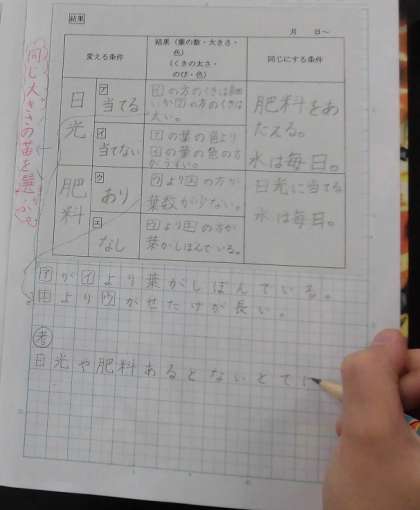 結果
月 日～
変える条件
結果（葉の数・大きさ・色）
（くきの太さ・のび・色）
同じにする条件
同じ大きさの苗を選ぶ
日光
ア 当てる
イ 当てない
肥料をあたえる。
水は毎日。
イの葉の色の方がうすい。
肥料
ウ あり
エ なし
ウよりエの方が
葉数が少ない。
ウよりエの方が
葉がしぼんでいる。
日光に当てる
水は毎日。
アがイより葉がしぼんでいる。
エよりウがせたけが長い。
考
日光や肥料あるとないとでは